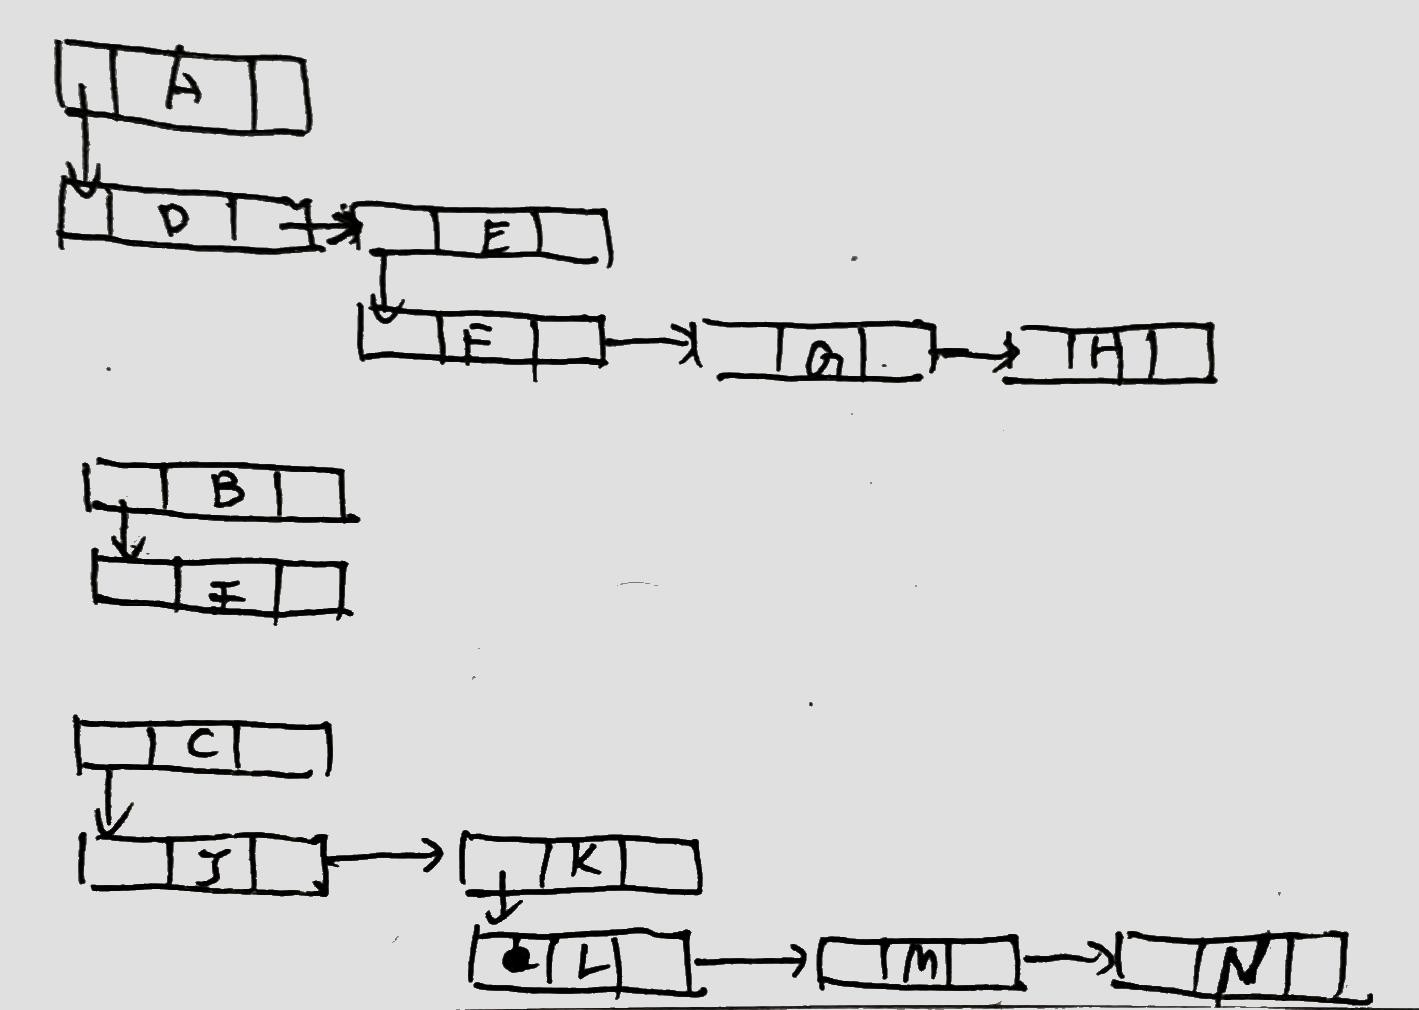 A
D E
F G H
B
I
C
J K
L M N